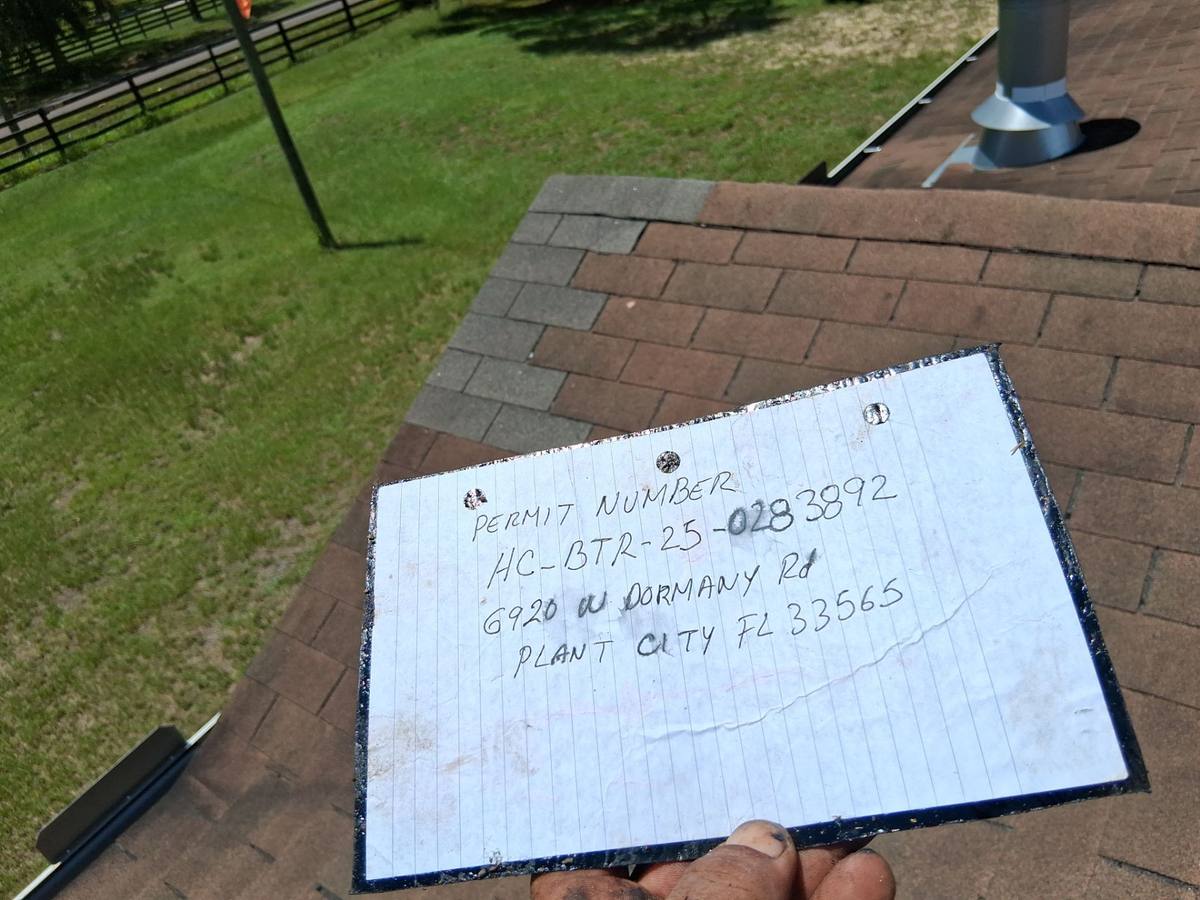 PERMIT NUMBER
HC-BTR-25-0283892
6920 W DORMANY Rd
PLANT CITY FL 33565